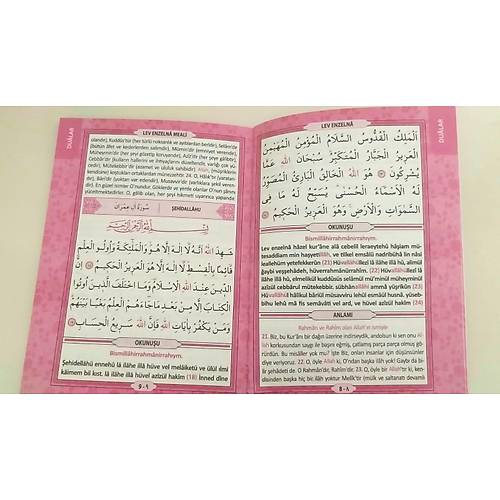 DUÂLAR
LEV ENZELNÂ
اَلْمَلِكُ الْقُدُّوسُ السَّلَامُ الْمُؤْمِنُ الْمُهَيْمِنُ
الْعَزِيزُ الْجَبَّارُ الْمُتَكَبِّرُ سُبْحَانَ اللهِ عَمَّا
يُشْرِكُونَ هُوَ اللهُ الْخَالِقُ الْبَارِئُ الْمُصَوِّرُ
لَهُ الْاَسْمَاءُ الْحُسْنٰى يُسَبِّحُ لَهُ مَا فِى
السَّمٰوَاتِ وَالْاَرْضِ وَهُوَ الْعَزِيزُ الْحَكِيمُ
OKUNUŞU
Bismillâhirrahmânirrahıym.
Lev enzelnâ hâzel kur'âne alâ cebelil leraeytehû hâşiam mü-
tesaddiam min haşyetillâh, ve tilkel emsâlü nadribühâ lin nâsi
leallehüm yetefekkerûn (21) Hüvallâhüllezî lâ ilâhe illâ hû, âlimül
ğaybi veşşehâdeh, hüverrahmânürrahîm. (22) Hüvallâhüllezî lâ
ilâhe illâ hû, elmelikül kuddûsüs selâmül mü'minül müheyminül
azîzül cebbârül mütekebbir. sübhânallâhi ammâ yüşrikûn (23)
Hüvallâhül hâlikul bâriül müsavviru lehül esmâül husnâ. yüseb-
bihu lehû mâ fis semâvâti vel ard, ve hüvel azîzül hakîm (24)
ANLAMI
Rahmân ve Rahîm olan Allah'ın ismiyle
21. Biz, bu Kur'ânı bir dağın üzerine indirseydik, andolsun ki sen onu Al-
lah korkusundan saygı ile başını eğmiş, çatlamış parça parça olmuş gö-
rürdün. Bu misâller yok mu? İşte Biz, onları insanlar için düşünsünler
diye veriyoruz. 22. O, öyle Allah'tır ki O'ndan başka ilâh yok! Gayb da bi-
lir şehâdeti de. O Rahmân'dır, Rahîm'dir. 23. O, öyle bir Allah'tır ki, ken-
disinden başka hiç bir ilâh yoktur Melik'tir (mülk ve saltanatı devamlı
8 - ٨
DUÂLAR
LEV ENZELNÂ MEALİ
olandır), Kuddûs'dür (her türlü noksanlık ve ayıplardan berîdir), Selâm'dır
(bütün âfet ve kederlerden salimdir), Mümin'dir (emniyet verendir),
Müheymin'dir (her şeyi gözetip koruyandır), Azîz'dir (her şeye gâlibdir),
Cebbâr'dır (kulların hallerini ve ihtiyaçlarını düzeltendir, varlığı çok yü-
cedir), Mütekebbir'dir (azamet ve ululuk sahibidir) Allah, (müşriklerin
kendisine) koştukları ortaklardan münezzehtir. 24. O, Hâlık'tır (yaratan-
dır), Bâri'dir (yoktan var edendir), Musavvir'dir (varlıklara şekil veren-
dir). En güzel isimler O'nundur. Göklerde ve yerde olanlar O'nun şanını
yüceltmektedirler. O, galip olan, her şeyi hikmeti uyarınca yapandır
سُورَةُ اٰلِ عِمْرَانَ
ŞEHİDALLÂHU
بِسْمِ اللهِ الرَّحْمٰنِ الرَّحِيمِ
شَهِدَ اللهُ اَنَّهُ لَا اِلٰهَ اِلَّا هُوَ وَالْمَلٰئِكَةُ وَاُولُوا الْعِلْمِ
قَائِمًا بِالْقِسْطِ لَا اِلٰهَ اِلَّا هُوَ الْعَزِيزُ الْحَكِيمُ
اِنَّ الدِّينَ عِنْدَ اللهِ الْاِسْلَامُ وَمَا اخْتَلَفَ الَّذِينَ اُوتُوا
الْكِتَابَ اِلَّا مِنْ بَعْدِ مَا جَاءَهُمُ الْعِلْمُ بَغْيًا بَيْنَهُمْ
وَمَنْ يَكْفُرْ بِاٰيَاتِ اللهِ فَاِنَّ اللهَ سَرِيعُ الْحِسَابِ
OKUNUŞU
Bismillâhirrahmânirrahıym.
Şehidallâhü ennehû lâ ilâhe illâ hüve vel melâiketü ve ülül ılmi
kâimem bil kıst. lâ ilâhe illâ hüvel azîzül hakîm (18) İnned dîne
9 - ٩